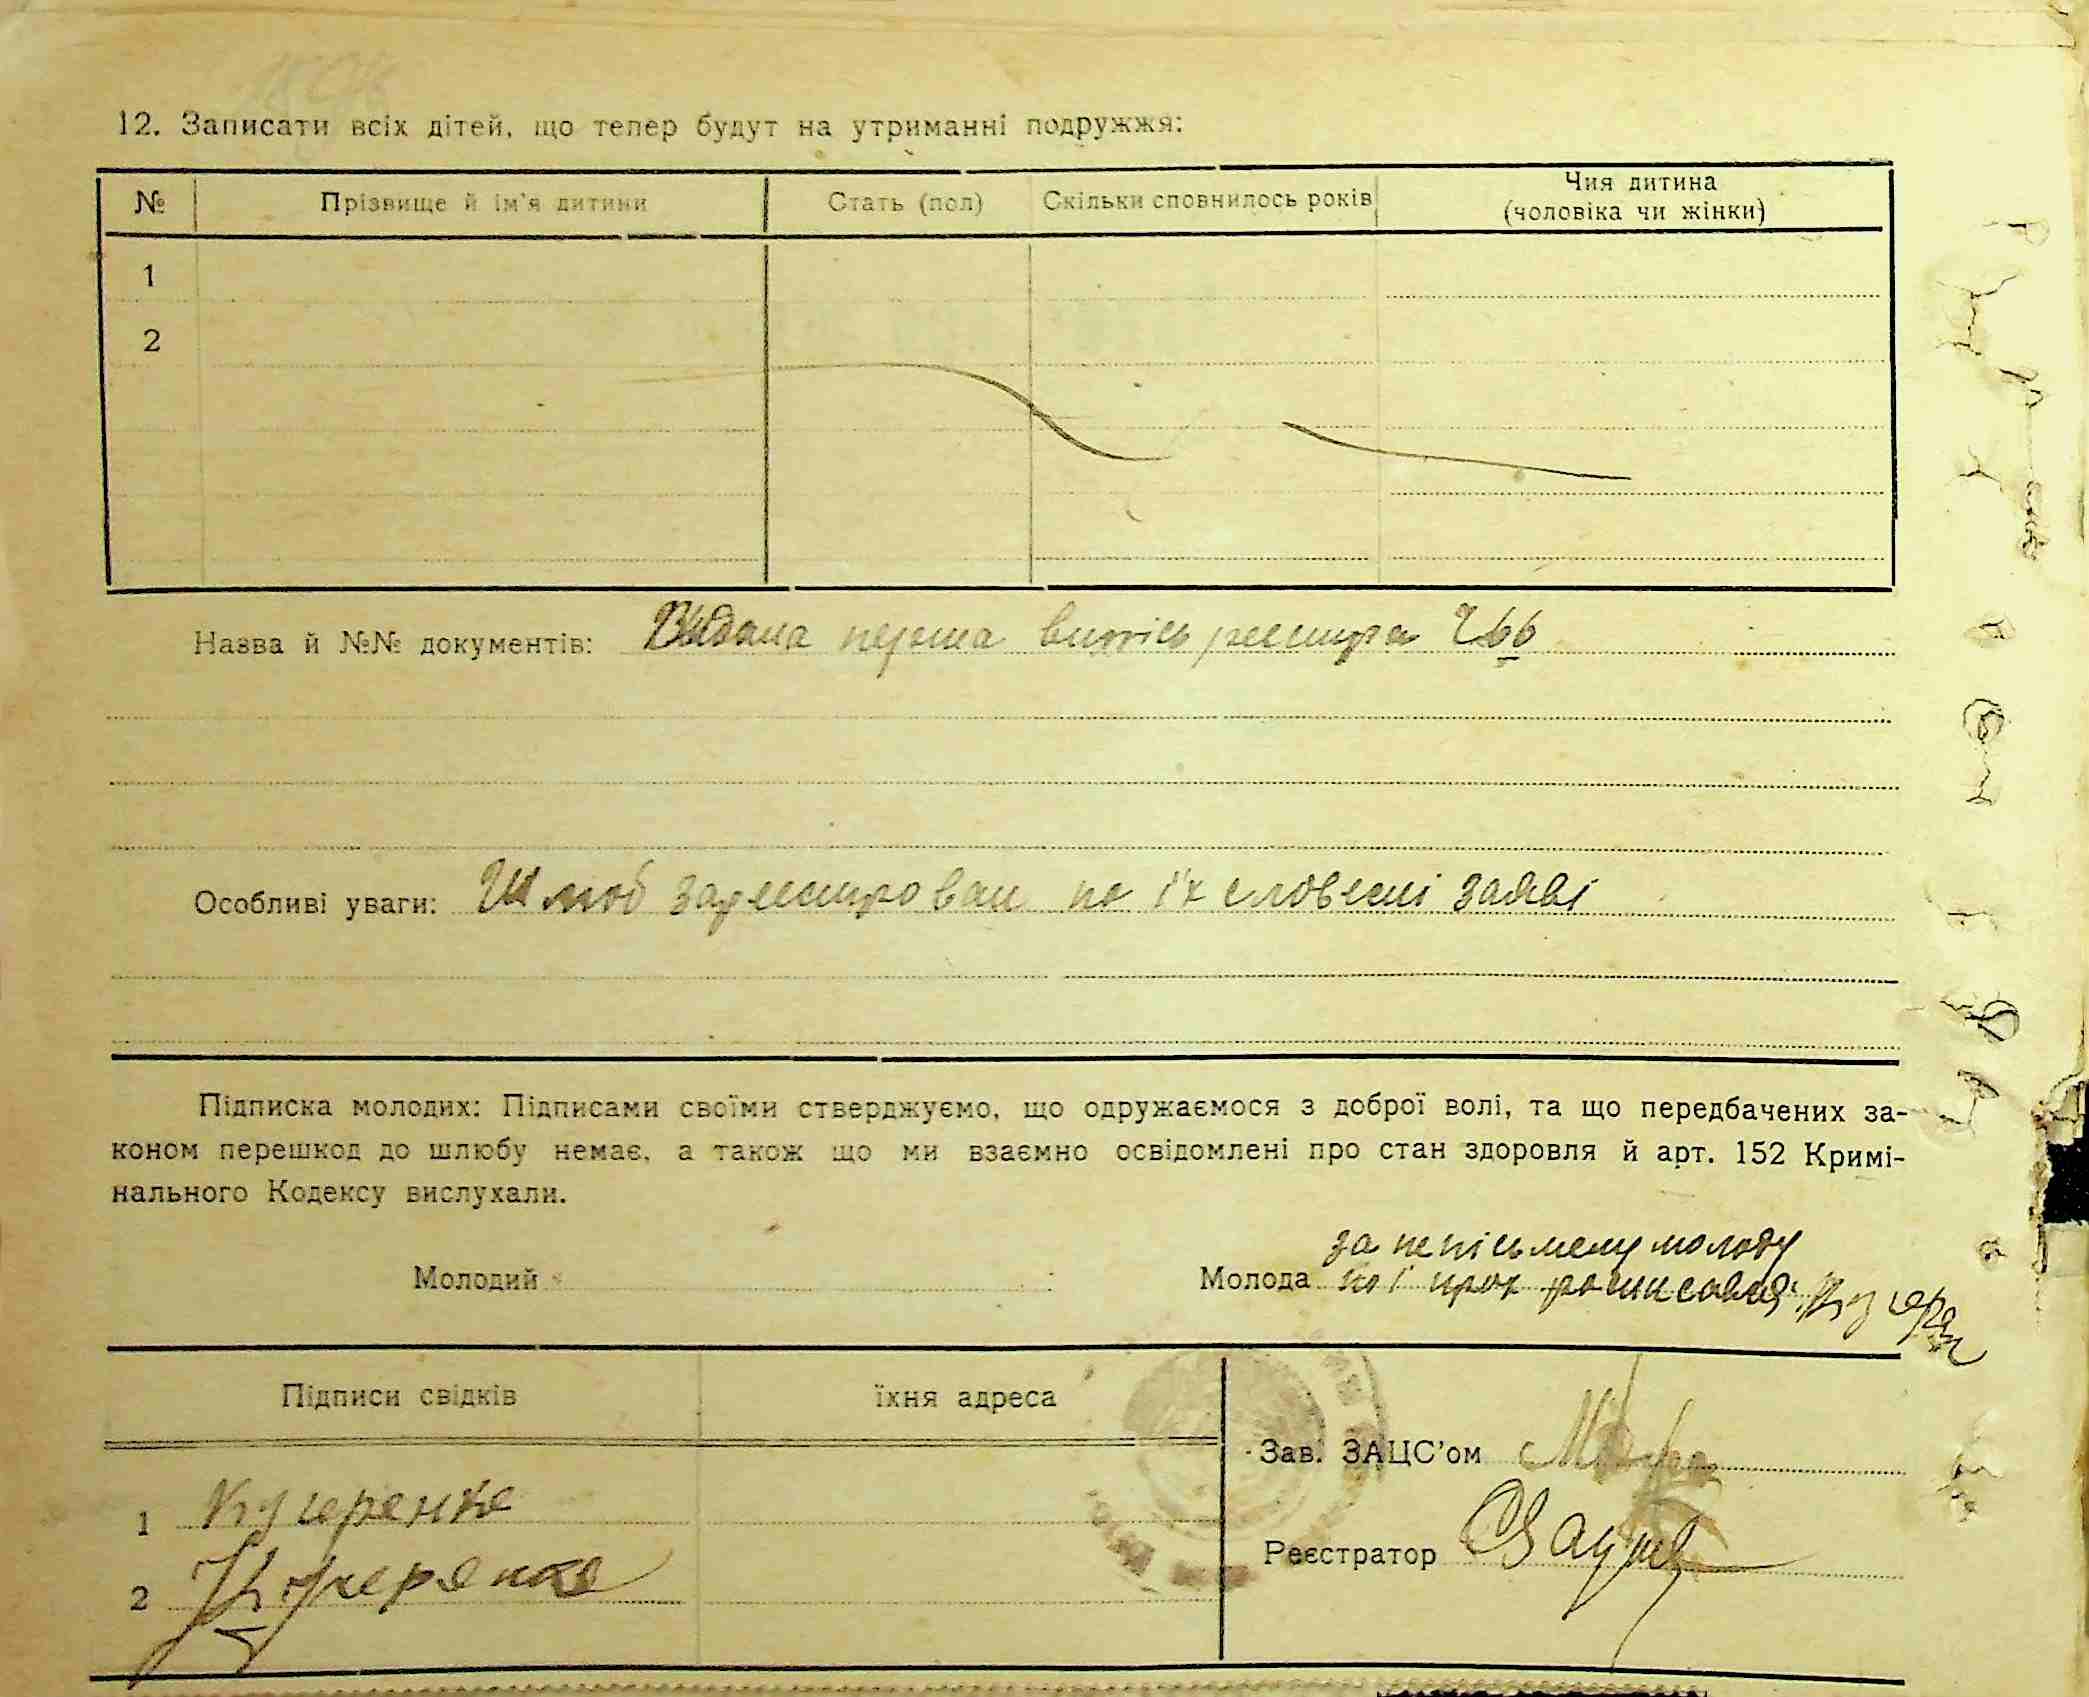 12. Записати всіх дітей, що тепер будут на утриманні подружжя:
№ Прізвище й ім'я дитини Стать (пол) Скільки сповнилось років Чия дитина
(чоловіка чи жінки)
1
2
Назва й №№ документів: Видана перша витпісь реєстра 266
Особливі уваги: Шлюб зареєстрован по їх словесні заяві
Підписка молодих: Підписами своїми стверджуємо, що одружаємося з доброї волі, та що передбачених за-
коном перешкод до шлюбу немає, а також що ми взаємно освідомлені про стан здоровля й арт. 152 Кримі-
нального Кодексу вислухали.
за непісьмену молоду
Молодий Молода по її
Підписи свідків їхня адреса
Зав. ЗАЦС'ом
1 Кучеренко
Реєстратор
2 Кучеренко